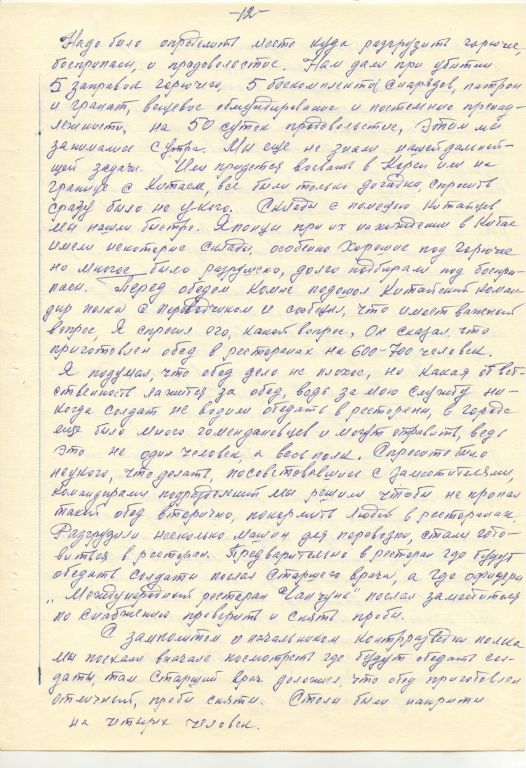 -12-
Надо было определить место куда разгрузить горючее,
боеприпасы, и продовольствие. Нам дали при убытии
5 заправок горючего, 5 боекомплектов снарядов, патрон
и гранат, вещевое обмундирование и постельные принад-
лежности, на 50 суток продовольствие, этим мы
занимались с утра. Мы еще не знали нашей дальней-
шей задачи. Или придется воевать в Корее или на
границе с Китаем, все были только догадки, спросить
сразу было не у кого. Склады с помощью Китайцев
мы нашли быстро. Японцы при их нахождении в Китае
имели некоторые склады, особенно хорошие под горючее
но многое было разрушено, долго подбирали под боепри-
пасы. Перед обедом ко мне подошол Китайский коман-
дир полка с переводчиком и сообщил, что имеет важный
вопрос. Я спросил его, какой вопрос. Он сказал, что
приготовлен обед в ресторанах на 600-700 человек.
Я подумал, что обед дело не плохое, но какая ответ-
ственность лажится за обед, ведь за мою службу ни-
когда солдат не водили обедать в рестораны, в городе
еще было много гоминдановцев и могут отравить, ведь
это не один человек, а весь полк. Спросить было
неукого, что делать, посоветовавшись с заместителями,
командирами подразделений мы решили чтобы не пропал
такой обед вторично, покормить людей в ресторанах.
Разгрузили несколько машин для перевозки, стали гото-
виться в ресторан. Предварительно в ресторан где будут
обедать солдаты послал Старшего врача, а где офицеры
„Международный ресторан Чанчунь" послал заместителя
по снабжению проверить и снять пробы.
С замполитом и начальником контрразведки полка
мы поехали вначале посмотреть где будут обедать сол-
даты, там Старший врач доложил, что обед приготовлен
отличный, пробы сняты. Столы были накрыты
на четырех человек.